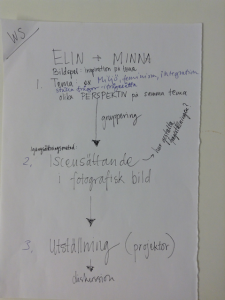 WS
ELIN + MINNA
Bildspel: inspiration på tema
1. Tema ex Miljö, feminism, integration
olika PERSPEKTIV på samma tema
gruppering
2. Iscensättande
i fotografisk bild
3. Utställning (projektor)
diskussion